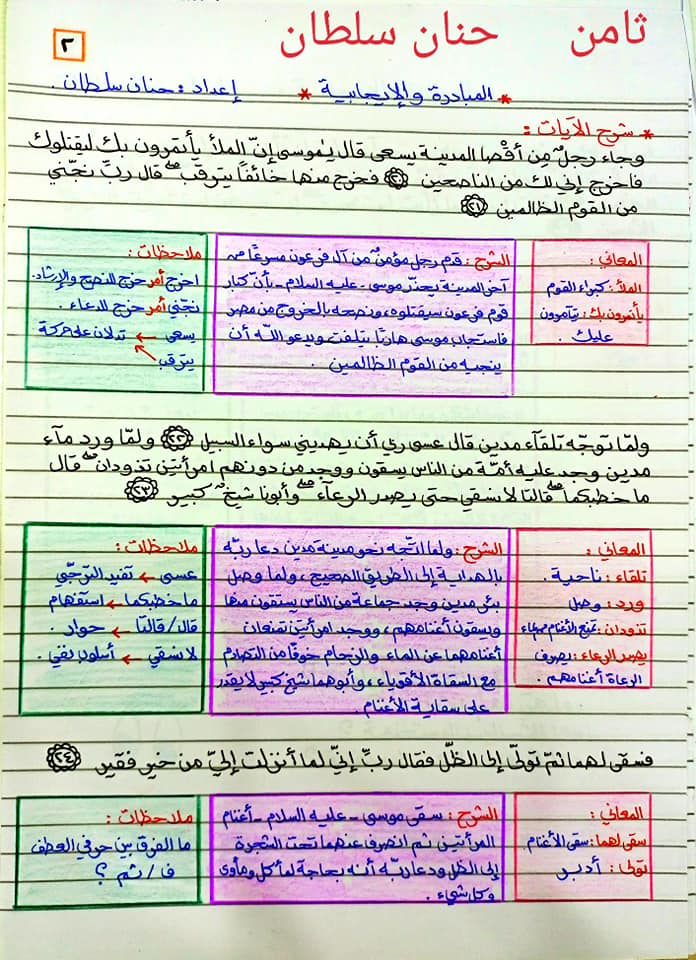 ثامن حنان سلطان
٣
* المبادرة والإيجابية * إعداد: حنان سلطان.
* شرح الآيات:
وجاء رجلٌ مِن أقْصا المدينة يسعى قال يٰموسى إنّ الملأ يأتمرون بك ليقتلوك
فاخرج إني لك من الناصحين ٢٠ فخرج منها خائفًا يترقب ۖ قال ربّ نجّني
من القوم الظالمين ٢١
المعاني:
الملأ: كبراء القوم
يأتمرون بك: يتآمرون
عليك.
الشرح: قدم رجل مؤمنٌ من آل فرعون مسرعًا من
آخر المدينة يحذّر موسى - عليه السلام - بأن كبار
قوم فرعون سيقتلوه، ونصحه بالخروج من مصر
فاستجاب موسى هاربًا يتلفت ويدعو الله أن
ينجيه من القوم الظالمين.
ملاحظات:
اخرج أمر خرج للنصح والإرشاد.
نجّني أمر خرج للدعاء.
يسعى ← تدلان على حركة
يترقب
ولمّا توجّه تلقآء مدين قال عسى ربي أن يهديني سواء السبيل ٢٢ ولمّا ورد مآء
مدين وجد عليه أمّة من الناس يسقون ووجد من دونهم امرأتين تذودان ۖ قال
ما خطبكما ۖ قالتا لا نسقي حتى يصدر الرعآء ۖ وأبونا شيخٌ كبير ٢٣
المعاني:
تلقاء: ناحية.
ورد: وصل
تذودان: تمنع الأغنام
يصدر الرعاء: يصرف
الرعاة أغنامهم.
الشرح: ولما اتّجه نحو مدينة مدين دعا ربّه
بالهداية إلى الطريق الصحيح، ولما وصل
بئر مدين وجد جماعة من الناس يستقون منها
ويسقون أغنامهم، ووجد امرأتين تمنعان
أغنامهما عن الماء والزحام خوفًا من التصادم
مع السقاة الأقوياء، وأبوهما شيخ كبير لا يقدر
على سقاية الأغنام.
ملاحظات:
عسى ← تفيد الترجّي
ما خطبكما ← استفهام
قال/قالتا ← حوار.
لا نسقي ← أسلوب نفي.
فسقى لهما ثمّ تولّى إلى الظّل فقال ربِّ إنّي لما أنزلت إليّ من خيرٍ فقير ٢٤
المعاني:
سقى لهما: سقى الأغنام.
تولى: أدبر
الشرح: سقى موسى - عليه السلام - أغنام
المرأتين ثم انصرف عنهما تحت الشجرة
إلى الظل ودعا ربّه أنه بحاجة لمأكل ومأوى
وكل شيء.
ملاحظات:
ما الفرق بين حرفي العطف
ف / ثم ؟